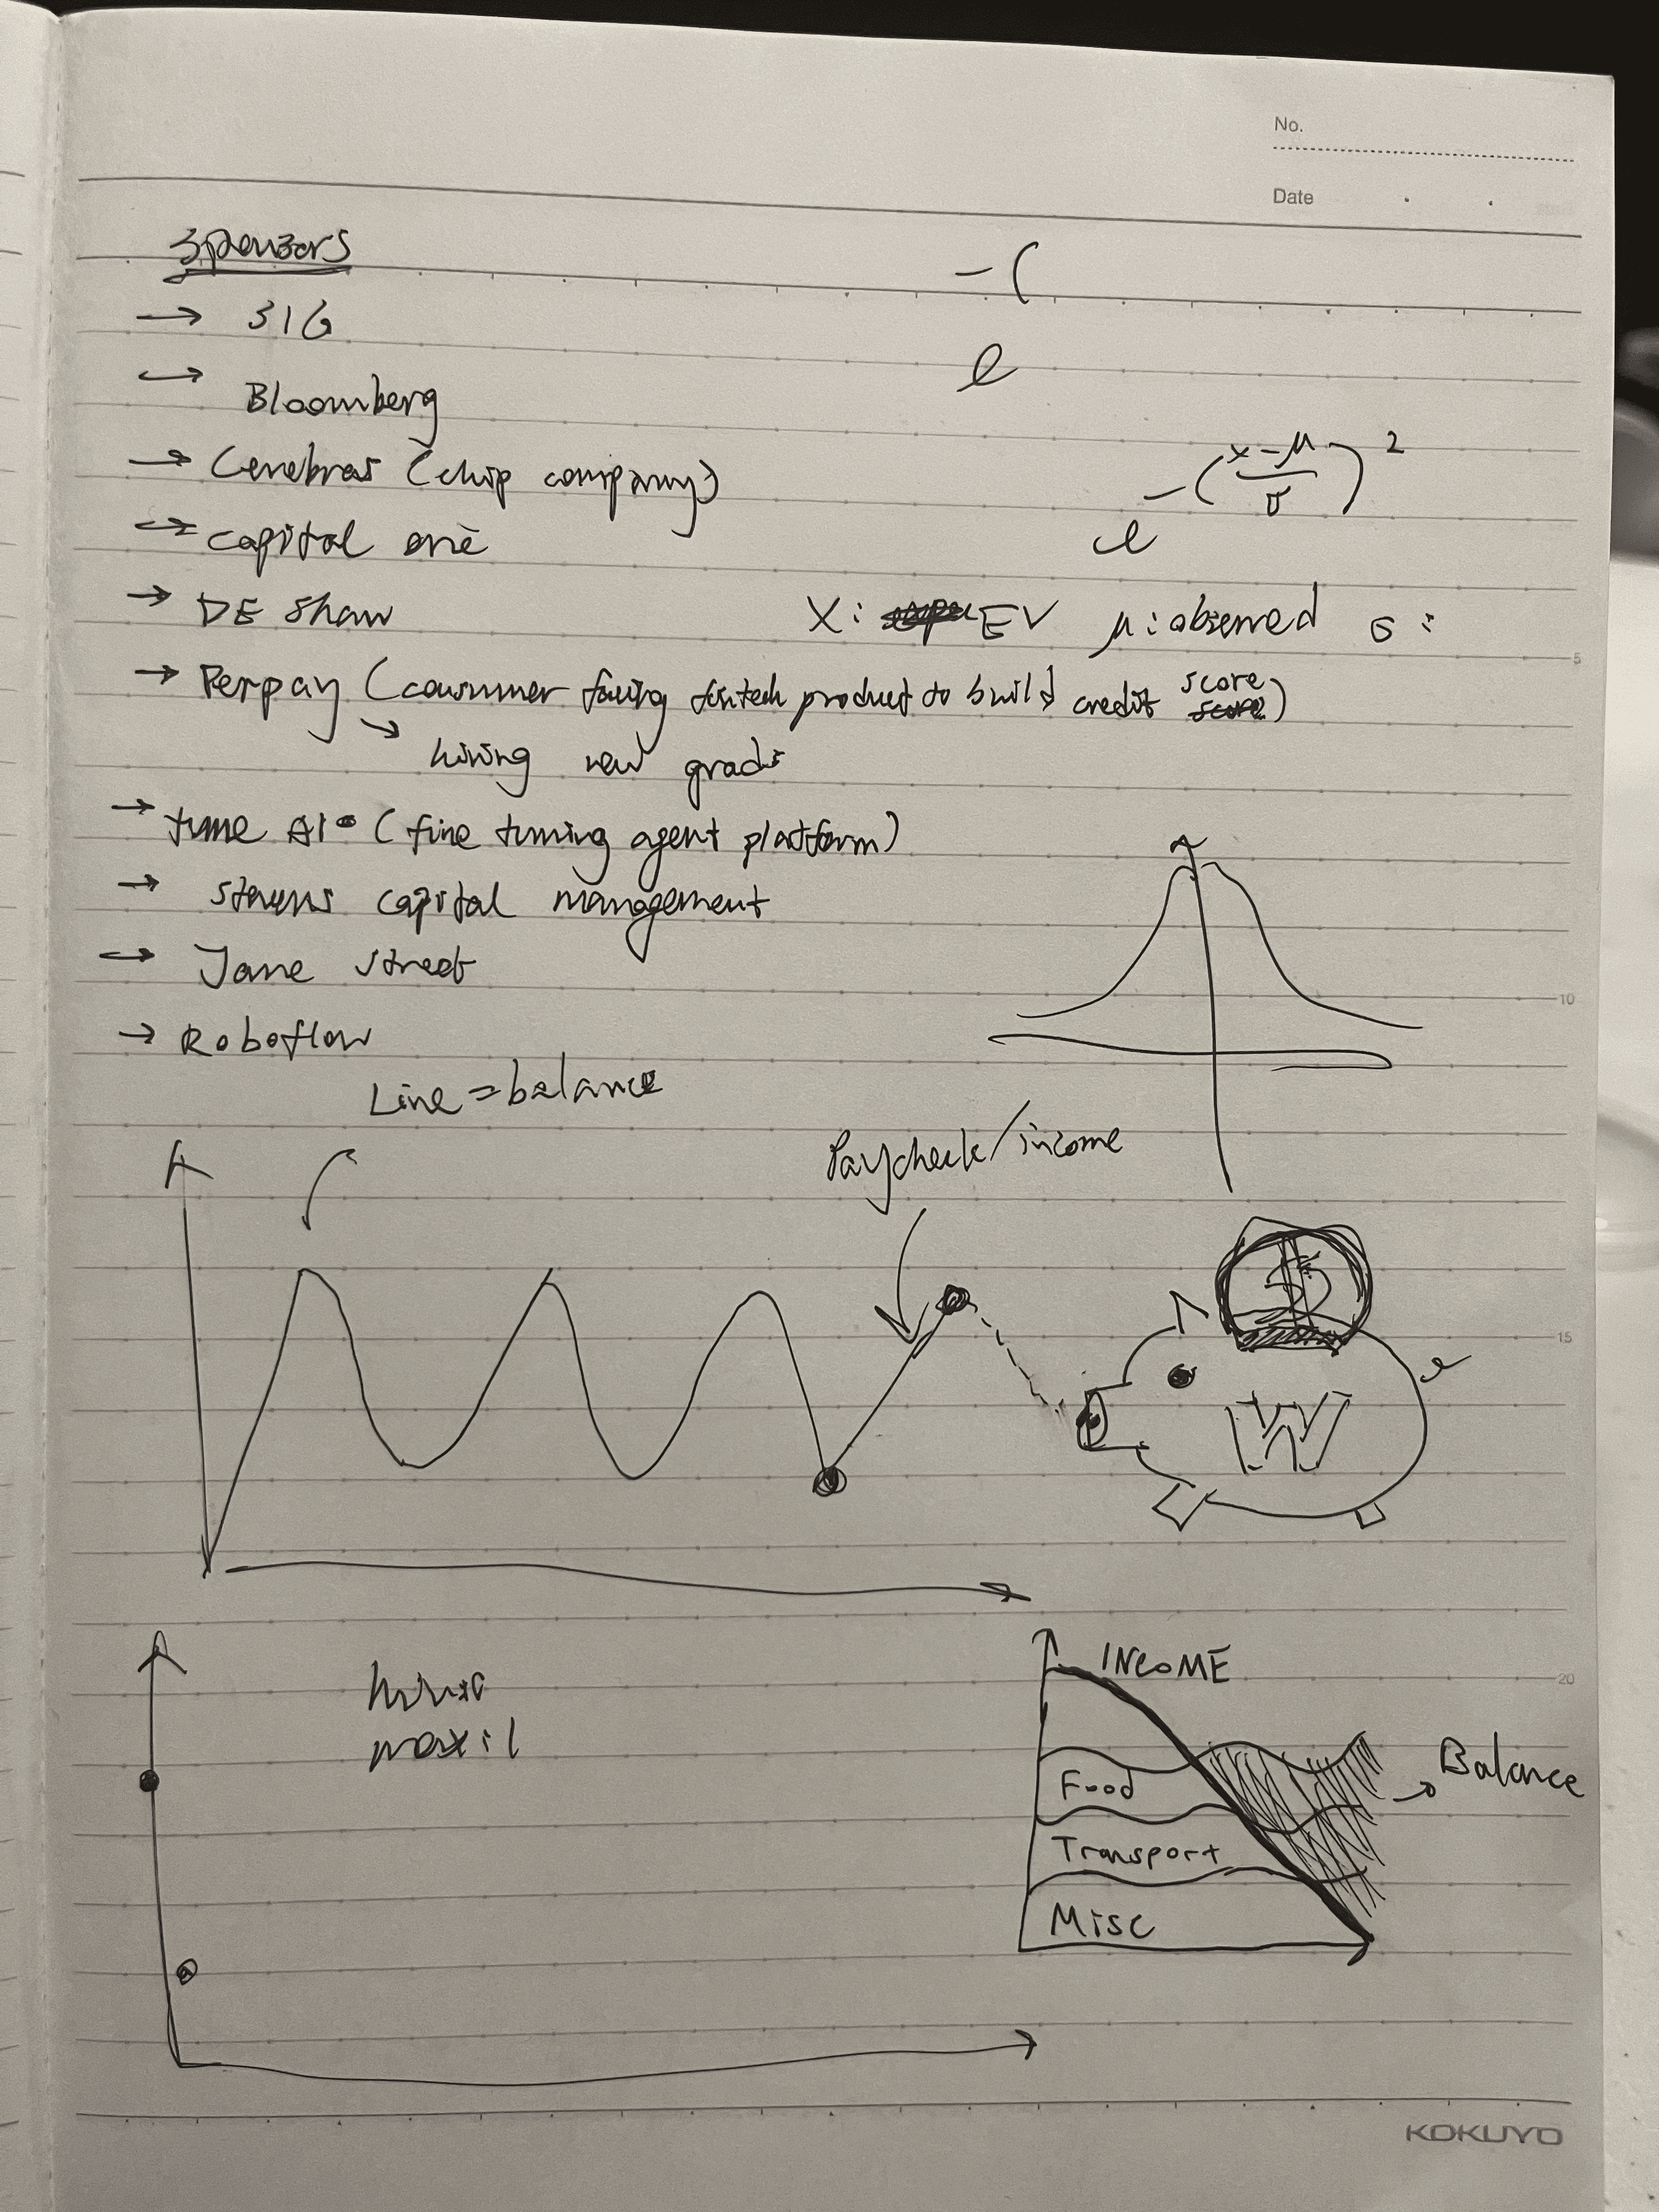 No.
Date
Sponsors
→ SIG
→ Bloomberg
→ Cerebras (chip company)
→ capital one
→ DE Shaw
→ Perpay (consumer facing fintech product to build credit score score)
↳ hiring new grads
→ tune AI (fine tuning agent platform)
→ Stevens capital management
→ Jane street
→ Roboflow
-(
e
e^-((x-μ)/σ)^2
X: EV μ: observed σ:
5
10
Line = balance
Paycheck/income
$
15
W
max: 1
INCOME
20
Food
Transport
Misc
→ Balance
KOKUYO